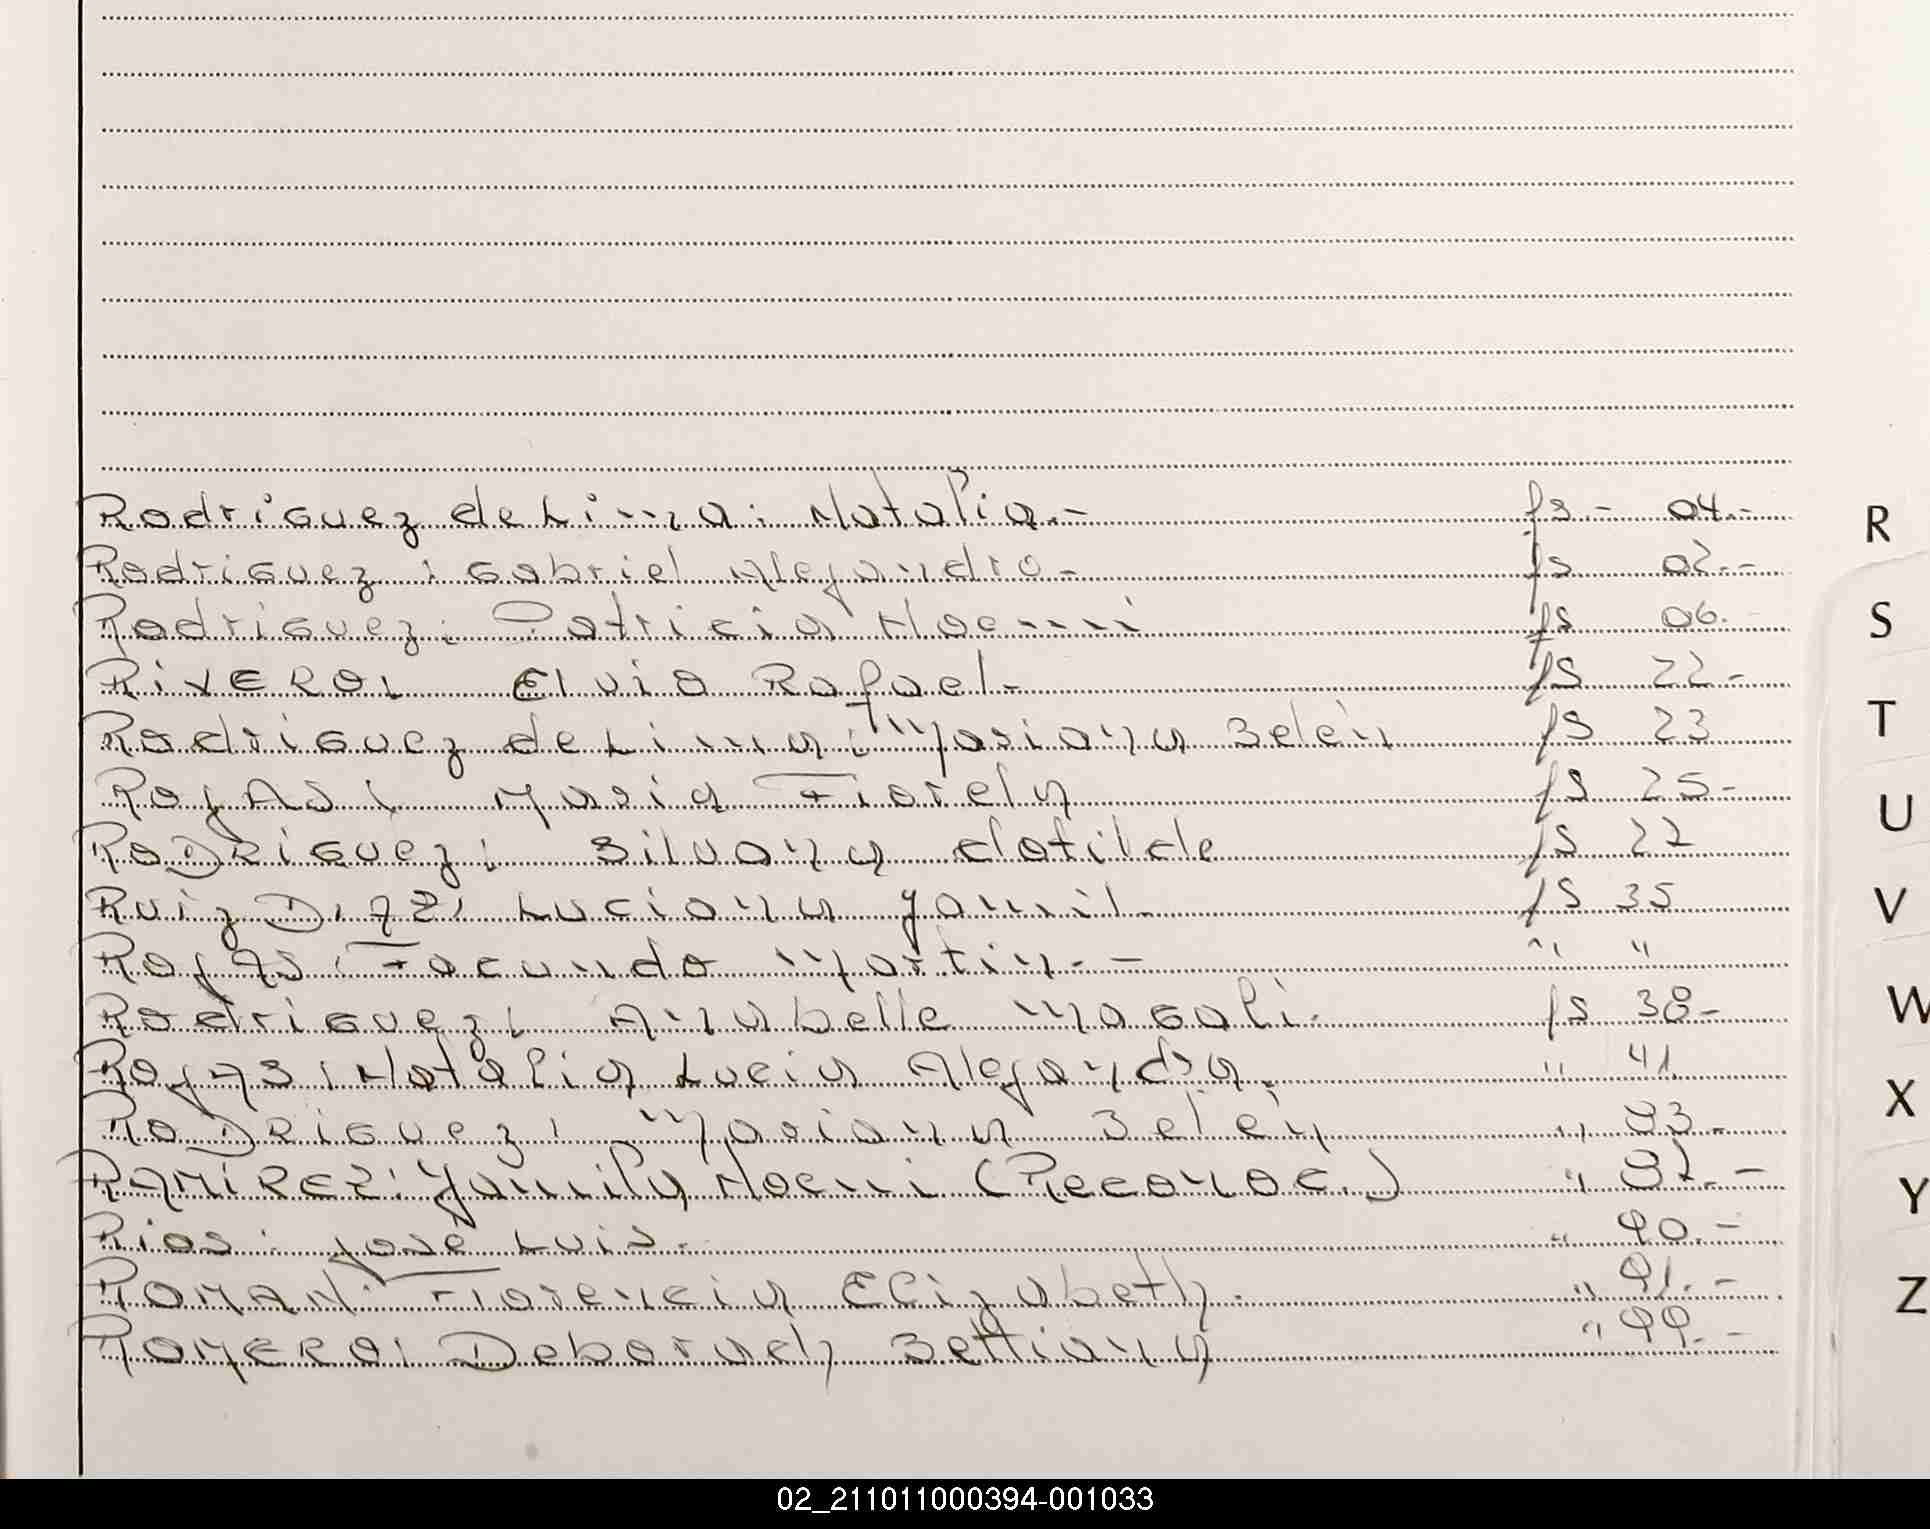 Rodriguez de Lima: Natalia.- fs.- 04.-
Rodriguez: Gabriel Alejandro.- fs 02.-
Rodriguez: Patricia Noemi fs 06.-
RIVERO: Elvio Rafael.- fs 22-
Rodriguez de Lima: Mariana Belén fs 23
Rojas: Maria Fiorela fs 25-
RoDRiguez: Silvana Clotilde fs 27
Ruiz DiAz: Luciana Yamil. fs 35
Rojas: Facundo Martin.- " "
Rodriguez: Anabelle Magali. fs 38-
Rojas: Natalia Lucia Alejandra. " 41
RoDRiguez: Mariana Belén " 83.-
RAMIREZ: Yamila Noemi (Reconoc.) " 87.-
Rios: José Luis. " 90.-
ROMAN: Florencia Elizabeth. " 91.-
ROMERO: Deborach Bettiana " 99.-
R
S
T
U
V
W
X
Y
Z
02_211011000394-001033